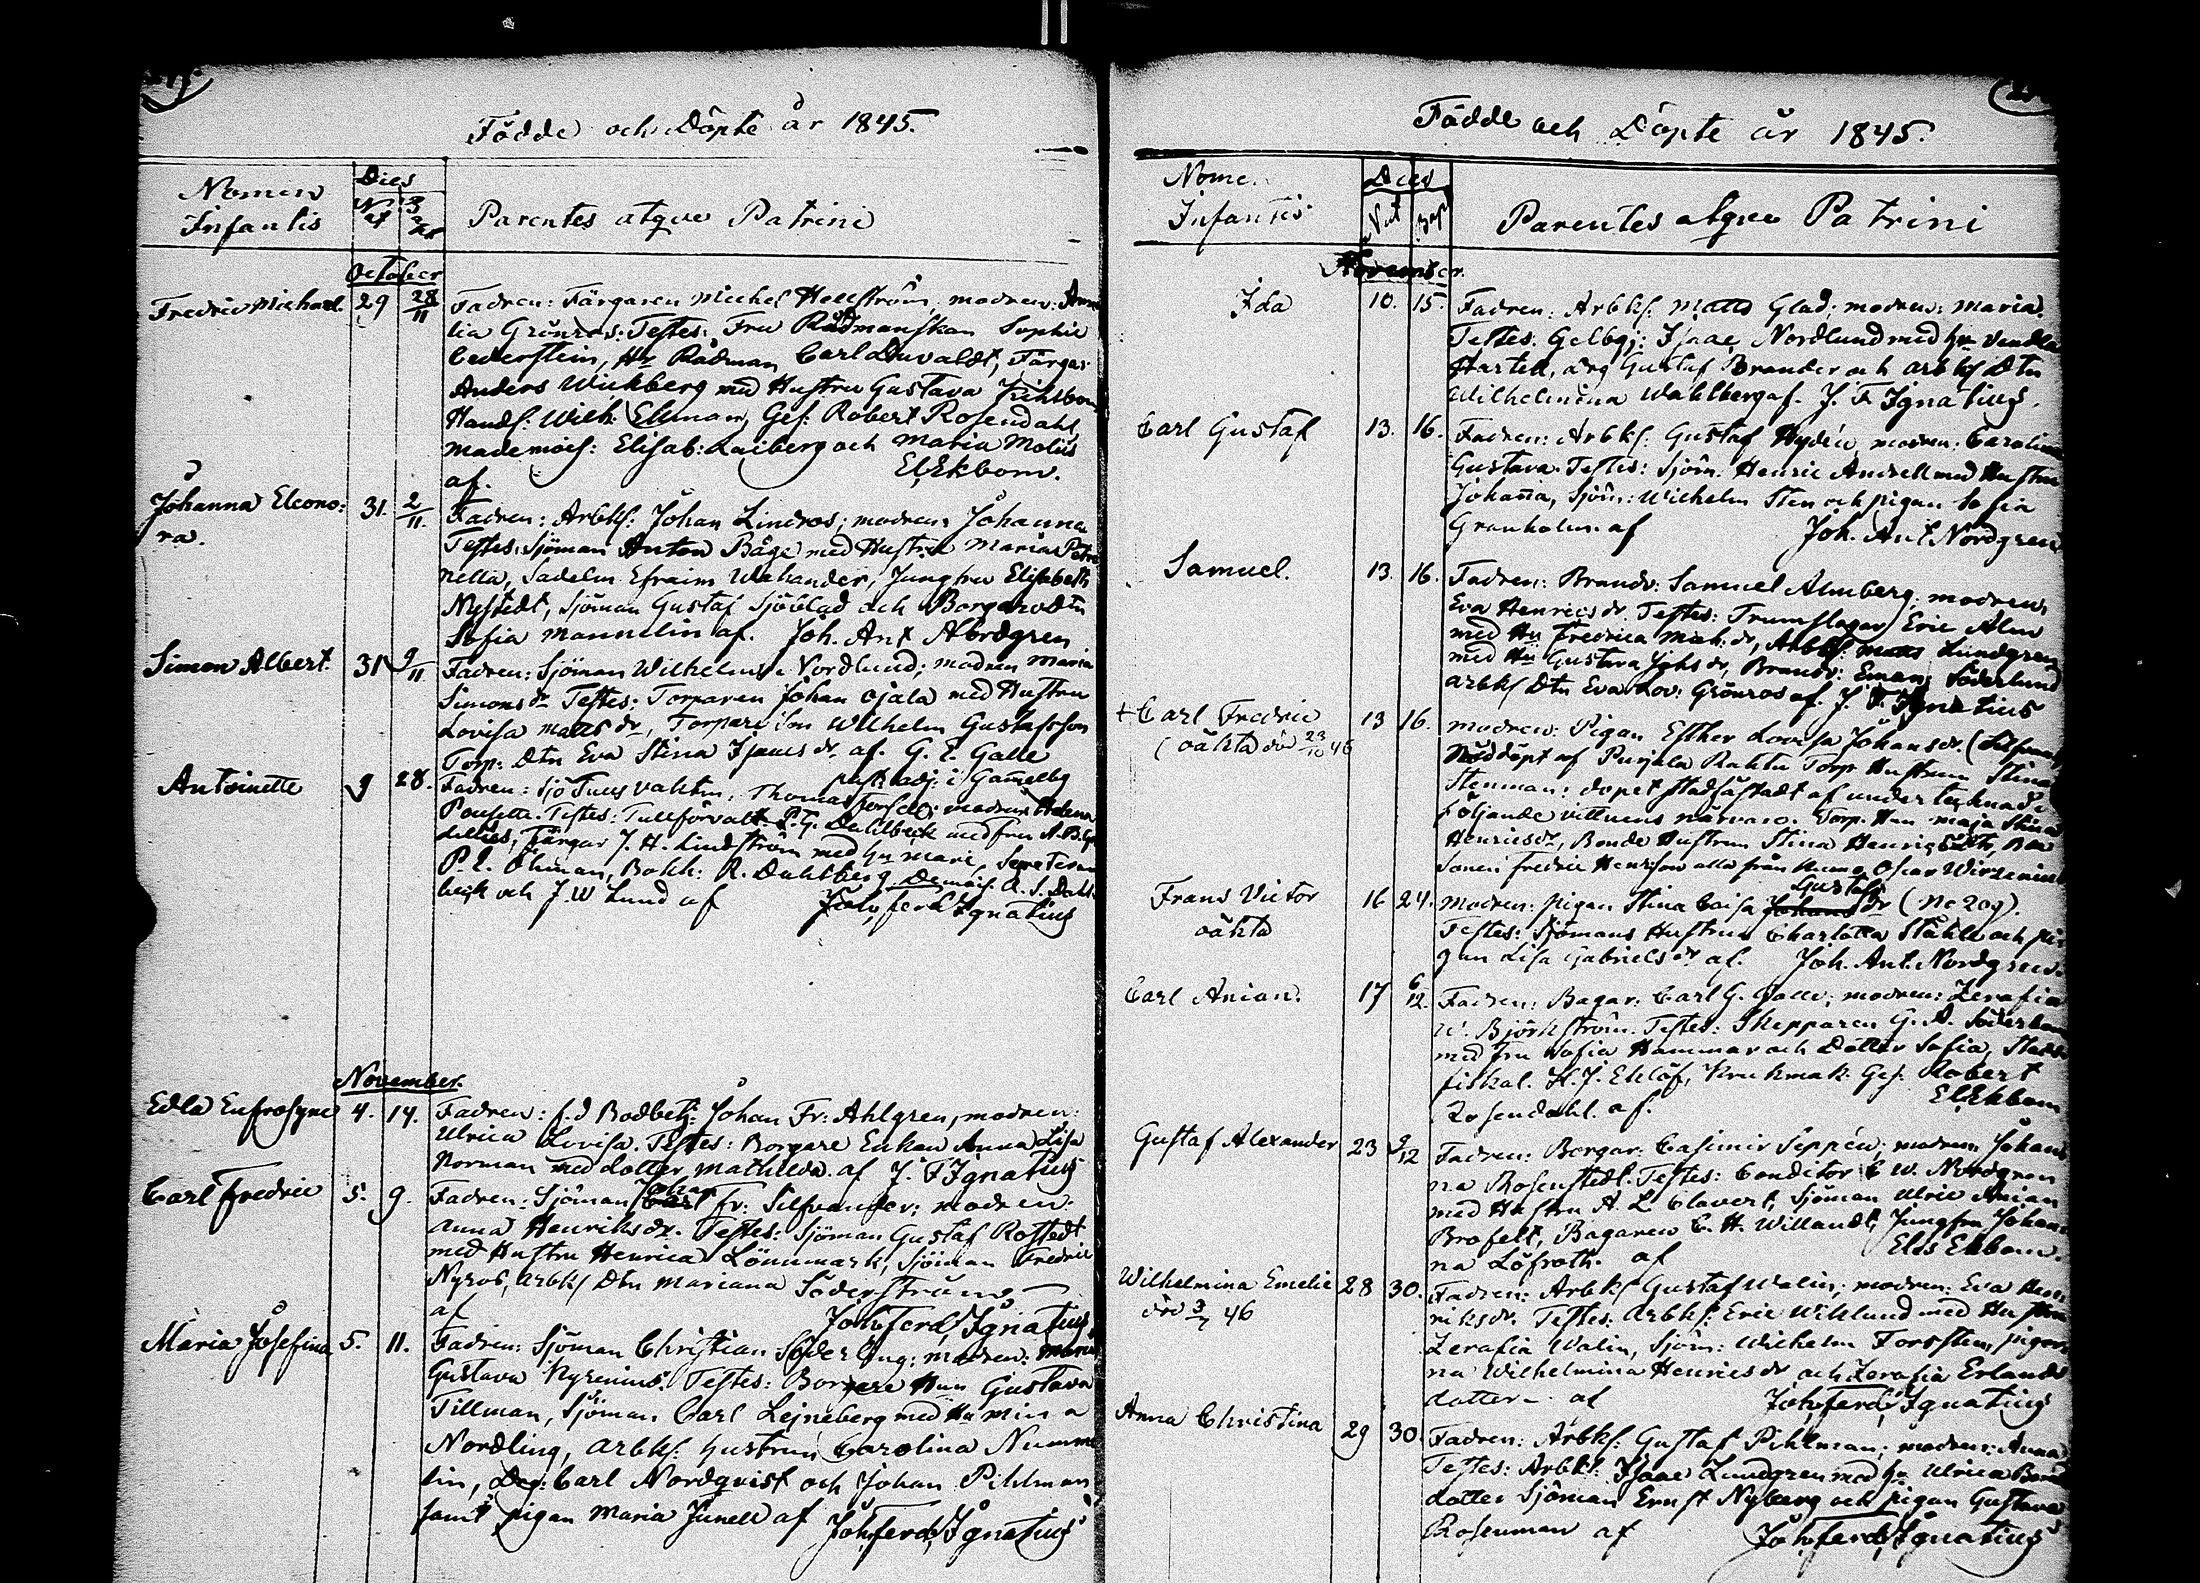 Födde och Döpte år 1845.
Nomen Infantis
Dies
Nat Bap
Parentes atque Patrini
October
Fredric Michael. 29 28/11 Fadren: Färgaren Michel Hellström, modren: Ama
lia Grönroos. Testes: Fru Rådmanskan Sophie
Cederstein, Hr Rådman Carl Duvaldt, Färgar
Anders Wickberg med Hustru Gustava
Handl: Wilh. Ekman, Ges: Robert Rosendahl,
mademois: Elisab: Laiberg och Maria Molis
af. El. Ekbom.
Johanna Eleono: 31. 2/11. Fadren: Arbks. Johan Lindros; modren: Johanna
ra. Testes: Sjöman Anton Båge med Hustru Maria Petro
nella, Sadelm. Efraim Welander, Jungfru Elisabeth
Nystedt, Sjöman Gustaf Sjöblad och Borgaredtn
Sofia Mannelin af. Joh. Ant Nordgren
Simon Albert. 31 9/11 Fadren: Sjöman Wilhelm Nordlund; modren Maria
Simonsdr Testes: Torparen Johan Ojala med Hustru
Lovisa Matts dr, Torpare Son Wilhelm Gustafsson
Torp: Dtn Eva Stina Isaacs dr. af. G. E. Galle
past: adj: i Gamelby
Antoinette 9 28. Fadren: Sjö Tull Vaktm. Thomas; modren: Helena
Pousette. Testes: Tullförvalt. P. G. Dahlbeck med fru A. B.
Färgar J. H. Lindström med Hu Marie,
P. E. Öhman, Bokh: R. Dahlberg, Demois: A. S. Dahl
beck och J. W Lund af Joh. Ferd. Ignatius
November.
Edla Eufrosyne 4. 14. Fadren: f.d Bodbetj: Johan Fr: Ahlgren, modren:
Ulrica Lovisa. Testes: Borgare Enkan Anna Lisa
Norman med dotter Mathilda. af J. F Ignatius
Carl Fredric 5. 9. Fadren: Sjöman Johan Fr: Silfvander; modren:
Anna Henriksdr. Testes: Sjöman Gustaf Rostedt
med Hustru Henrica Lönnmark, Sjöman Fredric
Nyros, Arbks Dtn Mariana Söderström
af Joh. Ferd. Ignatius
Maria Josefina 5. 11. Fadren: Sjöman Christian Söderling; modren: Maria
Gustava Nyrenius. Testes: Borgare Hun Gustava
Tillman, Sjöman Carl Lejneberg med Hu Mina
Nordling, Arbks. Hustrun Carolina Numme
lin, Drg: Carl Nordqvist och Johan Pihlman
samt pigan Maria Junell af Joh. Ferd. Ignatius
Födde och Döpte år 1845.
Nomen Infantis
Dies
Nat Bap
Parentes atque Patrini
November.
Ida 10. 15. Fadren: Arbks: Matts Glad; modren: Maria.
Testes. Gelbgj: Isaac Nordlund med Hu Vendla
Hartell, drg Gustaf Brander och Arbks Dtn
Wilhelmina Wahlberg af. J. F Ignatius.
Carl Gustaf 13. 16. Fadren: Arbks: Gustaf Hydén, modren: Carolina
Gustava. Testes: Sjöm. Henric Andrell med Hustru
Johanna, Sjöm: Wilhelm Sten och pigan Sofia
Granholm. af Joh. Ant. Nordgren
Samuel. 13. 16. Fadren: Brandv: Samuel Almberg; modren:
Eva Henrics dr. Testes: Trumslagar Eric Alm
med Hu Fredrica Mich. dr, Arbks: Matts Lundgren
med Hu Gustava Johs dr, Brandv: Eman: Söderlund
Arbks Dtn Eva Lov: Grönros af. J. F. Ignatius
+ Carl Fredric 13 16. modren: Pigan Esther Lovisa Johansdr
(oäkta dö 23/10 46 Nöddöpt af Torp Hustrun Stina
Stenman: dopet stadfästadt af undertecknad i
följande vittnens närvaro. Torp. Hun Maja Stina
Henricsdr, Bonde Hustrun Stina Henrics Dtr, Bon
Sonen Fredric Henrikson alla från Kumo Oscar Wirzenius
Frans Victor 16 24. modren: pigan Stina Caisa Gustafs dr (No 209).
oäkta Testes: Sjömans Hustrun Charlotta Ståhle och pi
gan Lisa Gabrielsdr af. Joh. Ant. Nordgren.
Carl Anian. 17 6/12. Fadren: Bagar: Carl G. Salle; modren: Zerafia
W. Björkström. Testes: Skepparen G. A. Söderlund
med Fru Sofia Hammar och Dotter Sofia, Stads
fiskal. H. J. Eklöf, Krukmak: Ges: Robert
Rosendahl. af. El. Ekbom
Gustaf Alexander 23 9/12 Fadren: Borgar: Casimir Seppén; modren Johan
na Rosenstedt. Testes: Conditor C W. Nordgren
med Hustru A. L. Clavert, Sjöman Ulric Anian
Brofelt, Bagaren C. H. Willandt, Jungfru Johan
na Löfroth. af Elis Ekbom.
Wilhelmina Emelie 28 30. Fadren: Arbks Gustaf Walin; modren: Eva Hen
dö 3/7 46 riksdr. Testes. Arbks: Eric Wiklund med Hustru
Zerafia Walin, Sjöm: Wilhelm Forssten, pigor
na Wilhelmina Henricsdr och Zerafia Erlands
dotter. af Joh. Ferd. Ignatius
Anna Christina 29 30. Fadren: Arbks: Gustaf Pihlman; modren: Anna
Testes: Arbks: Isaac Lundgren med Hu Ulrica
dotter Sjöman Ernst Nyberg och pigan Gustava
Rosenman af Joh. Ferd. Ignatius